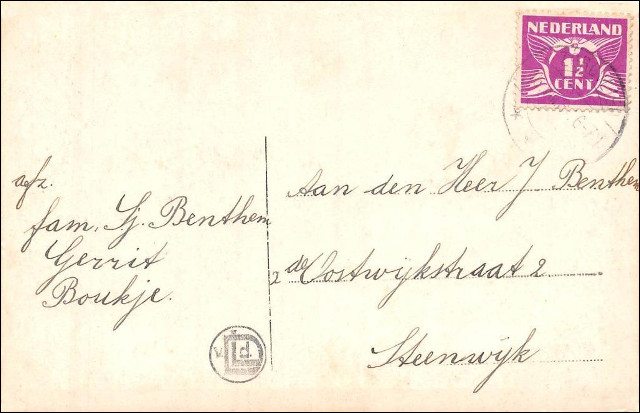 NEDERLAND
1½
CENT
6-7
afz.
fam. G. Benthem
Gerrit
Boukje.
Aan den Heer J Benthem
2de Oostwijkstraat 2
Steenwijk
v. Ld.